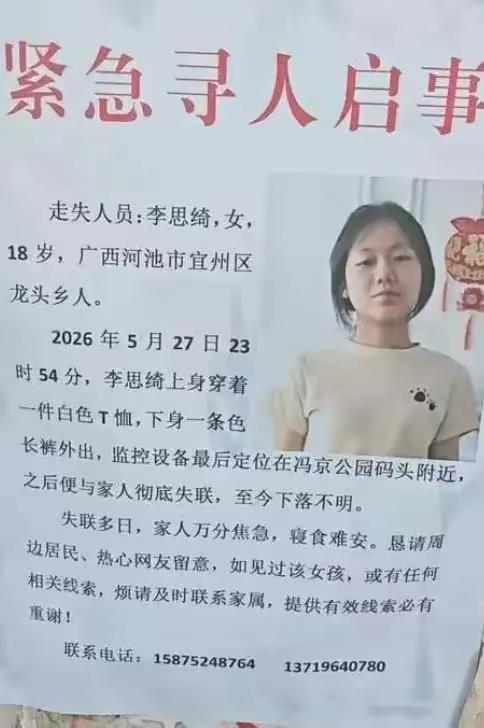 紧急寻人启事
走失人员：李思绮，女，
18 岁，广西河池市宜州区
龙头乡人。
2026 年 5 月 27 日 23
时 54 分，李思绮上身穿着
一件白色 T 恤，下身一条色
长裤外出，监控设备最后定位在冯京公园码头附近，
之后便与家人彻底失联，至今下落不明。
失联多日，家人万分焦急，寝食难安。恳请周
边居民、热心网友留意，如见过该女孩，或有任何
相关线索，烦请及时联系家属，提供有效线索必有
重谢！
联系电话：15875248764 13719640780